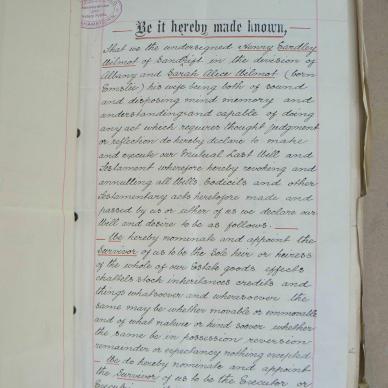 Be it hereby made known,
That we the undersigned Henry Eardley
Wilmot of Sandflit in the division of
Albany and Sarah Alice Wilmot (born
Emslie) his wife being both of sound
and disposing mind memory and
understanding and capable of doing
any act which requires thought judgment
or reflection do hereby declare to make
and execute our Mutual Last Will and
Testament wherefore hereby revoking and
annulling all Wills, Codicils and other
Testamentary acts heretofore made and
passed by us or either of us we declare our
Will and desire to be as follows.
We hereby nominate and appoint the
Survivor of us to be the Sole heir or heiress
of the whole of our Estate goods effects
chattels stock inheritances credits and
things whatsoever and wheresoever the
same may be whether movable or immovable
and of what nature or kind soever whether
the same be in possession reversion
remainder or expectancy nothing excepted.
We do hereby nominate and appoint
the Survivor of us to be the Executor or